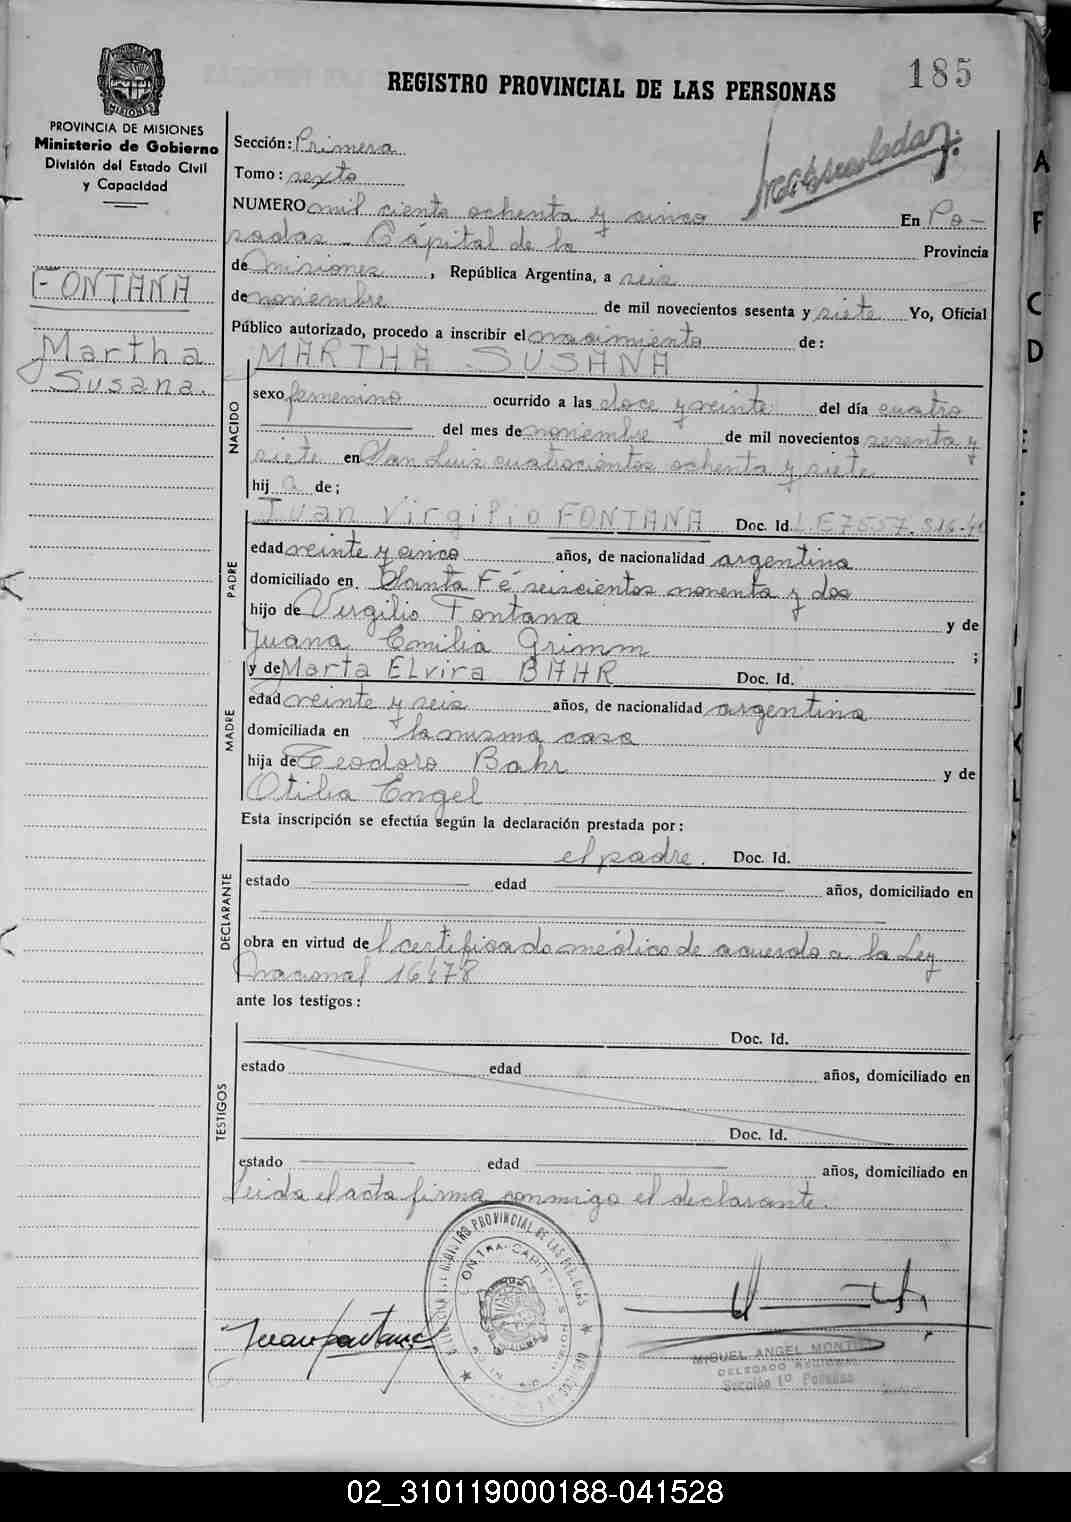 185
REGISTRO PROVINCIAL DE LAS PERSONAS
PROVINCIA DE MISIONES
Ministerio de Gobierno
División del Estado Civil
y Capacidad
FONTANA
Martha
Susana.
Sección: Primera
Tomo: sexto
NUMERO mil ciento ochenta y cinco En Po-
sadas - Cápital de la Provincia
de Misiones, República Argentina, a seis
de noviembre de mil novecientos sesenta y siete Yo, Oficial
Público autorizado, procedo a inscribir el nacimiento de:
MARTHA SUSANA
NACIDO
sexo femenino ocurrido a las doce y veinte del día cuatro
del mes de noviembre de mil novecientos sesenta y
siete en San Luis cuatrocientos ochenta y siete
hija de;
PADRE
Juan Virgilio FONTANA Doc. Id. L.E 7557.816-
edad veinte y cinco años, de nacionalidad argentina
domiciliado en Santa Fé seiscientos noventa y dos
hijo de Virgilio Fontana y de
Juana Emilia Grimm ;
MADRE
y de Marta ELvira BAHR Doc. Id.
edad veinte y seis años, de nacionalidad argentina
domiciliada en la misma casa
hija de Teodoro Bahr y de
Otilia Engel
Esta inscripción se efectúa según la declaración prestada por:
DECLARANTE
el padre. Doc. Id.
estado edad años, domiciliado en
obra en virtud del certificado médico de acuerdo a la Ley
Nacional 16478
ante los testigos:
TESTIGOS
Doc. Id.
estado edad años, domiciliado en
Doc. Id.
estado edad años, domiciliado en
Leida el acta firma conmigo el declarante.
Juan Fontana
MIGUEL ANGEL
DELEGADO REGIONAL
Sección 1º Posadas
A
F
C
D
02_310119000188-041528